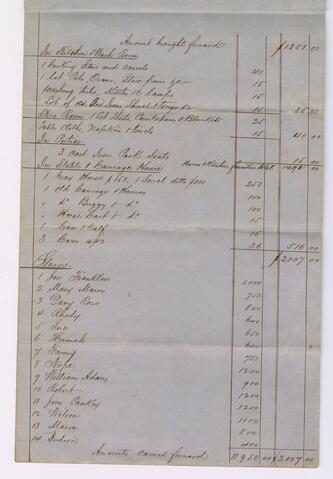 Amount brought forward $1351 00
In Kitchen & Wash Room
1 Cooking Stove and vessels 40
1 Lot Pots, Ovens, Stew pans &c 15
Washing tubs, Kettles 16 Lamps 15
Lot of old Iron Shovel & Tongs &c 15 85 00
Store Room 1 Lot Sheets, Counterpanes & Blankets 25
Table Cloths, Napkins & Towels 15 40 00
In Portico
3 Cast Iron Park Seats 15 00
In Stable & Carriage House House & Kitchen furniture total 1491 00
1 Gray Horse $150, 1 Sorrel ditto $100 250
1 Old Carriage & Harness 100
1 do Buggy & do 100
1 do Horse Cart & do 15
1 Cow & Calf 15
3 Cows 36 516 00
$2,007 00
Slaves
1 Joe Franklin 1,000
2 Mary Mason 750
3 Davy Ross 600
4 Rhody 600
5 Sue
6 Hannah 600
7 Fanny 750
8 Pope 1200
9 William Adams 900
10 Robert 1200
11 Jim Pankey 1200
12 Wilson 1000
13 Maria 800
14 Judson 400
Amounts carried forward 11950 00 $2,007 00